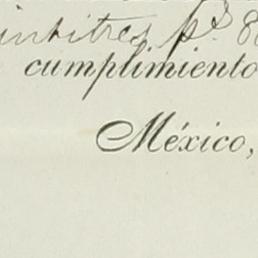 intitres ps 8
cumplimiento
México,